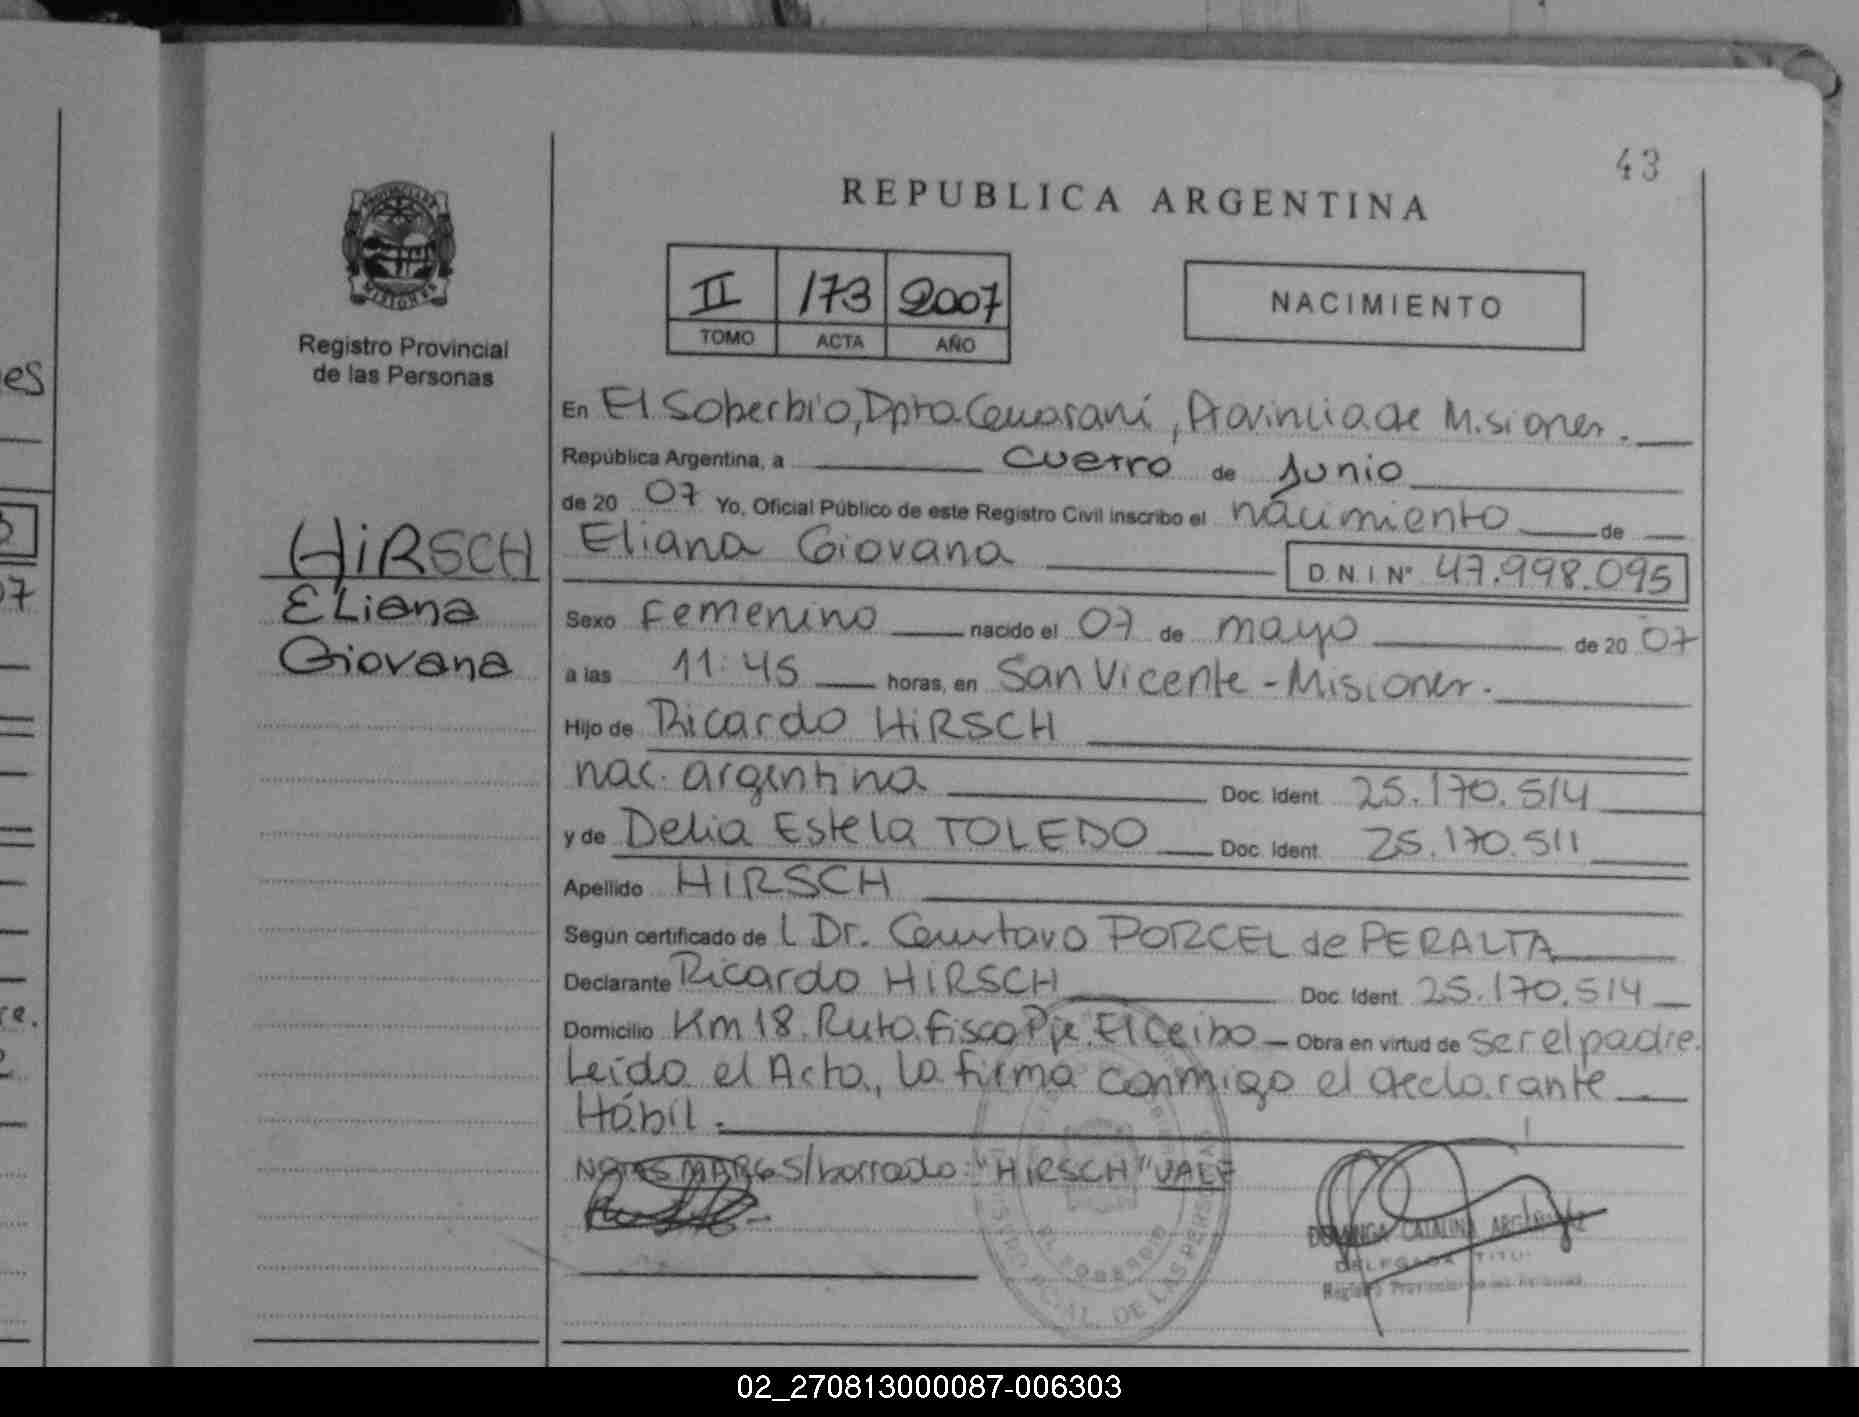 43
REPUBLICA ARGENTINA
PROVINCIA DE MISIONES
Registro Provincial
de las Personas
II 173 2007
TOMO ACTA AÑO
NACIMIENTO
En El Soberbio, Dpto Guaraní, Provincia de Misiones.
República Argentina, a cuatro de Junio
de 20 07 Yo, Oficial Público de este Registro Civil inscribo el nacimiento de
Eliana Giovana
D.N.I Nº 47.998.095
HIRSCH
Eliana
Giovana
Sexo Femenino nacido el 07 de mayo de 20 07
a las 11:45 horas, en San Vicente - Misiones.
Hijo de Ricardo HIRSCH
nac. argentina Doc. Ident. 25.170.514
y de Delia Estela TOLEDO Doc. Ident. 25.170.511
Apellido HIRSCH
Según certificado de l Dr. Gustavo PORCEL de PERALTA
Declarante Ricardo HIRSCH Doc. Ident. 25.170.514
Domicilio Km 18. Ruta. fisco Pje. El Ceibo - Obra en virtud de ser el padre.
Leído el Acta, la firma conmigo el declarante
Hábil.
S/borrado: "HIRSCH" VALE
DOMINGA CATALINA
DELEGADA
Registro Provincial de las Personas
EL SOBERBIO
DE LAS PERSONAS
es
07
re.
02_270813000087-006303